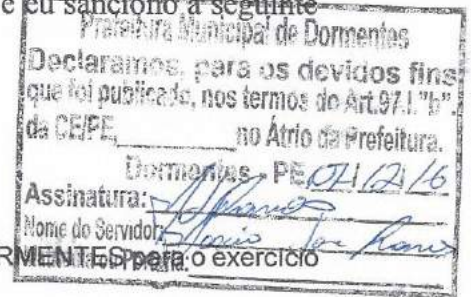 e eu sanciono a seguinte
Prefeitura Municipal de Dormentes
Declaramos, para os devidos fins
que foi publicado, nos termos do Art.97.I."b".
da CE/PE, no Átrio da Prefeitura.
Dormentes - PE
Assinatura:
Nome do Servidor:
RMENTES para o exercício